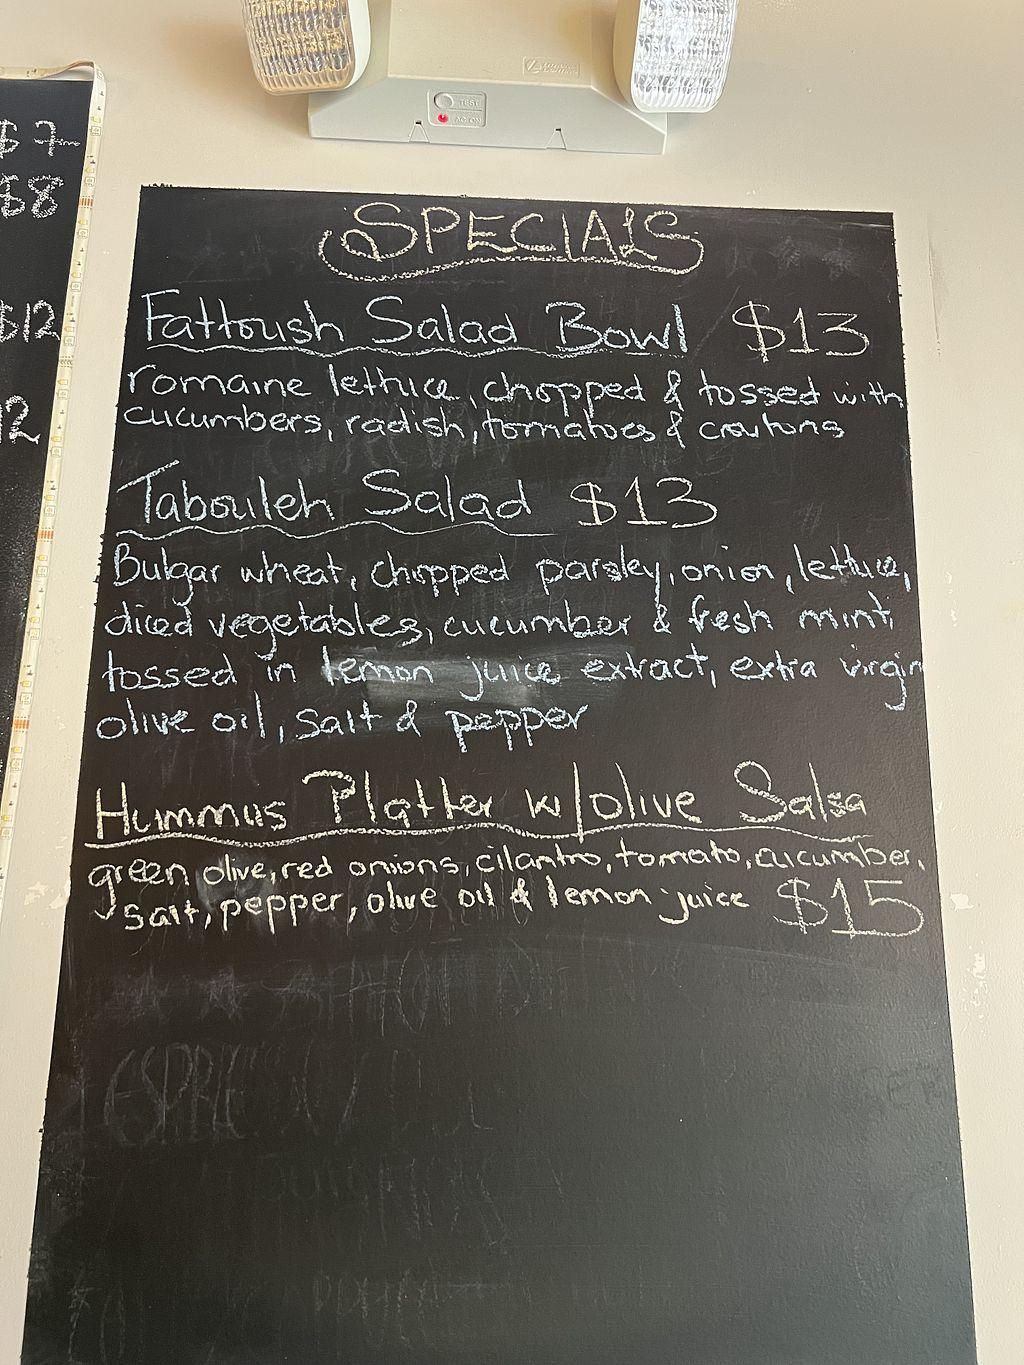 TEST
AC ON
$7
$8
$12
12
SPECIALS
Fattoush Salad Bowl $13
romaine lettuce, chopped & tossed with
cucumbers, radish, tomatoes & croutons
Tabouleh Salad $13
Bulgar wheat, chopped parsley, onion, lettuce,
diced vegetables, cucumber & fresh mint,
tossed in lemon juice extract, extra virgin
olive oil, salt & pepper
Hummus Platter w/olive Salsa
green olive, red onions, cilantro, tomato, cucumber,
salt, pepper, olive oil & lemon juice $15